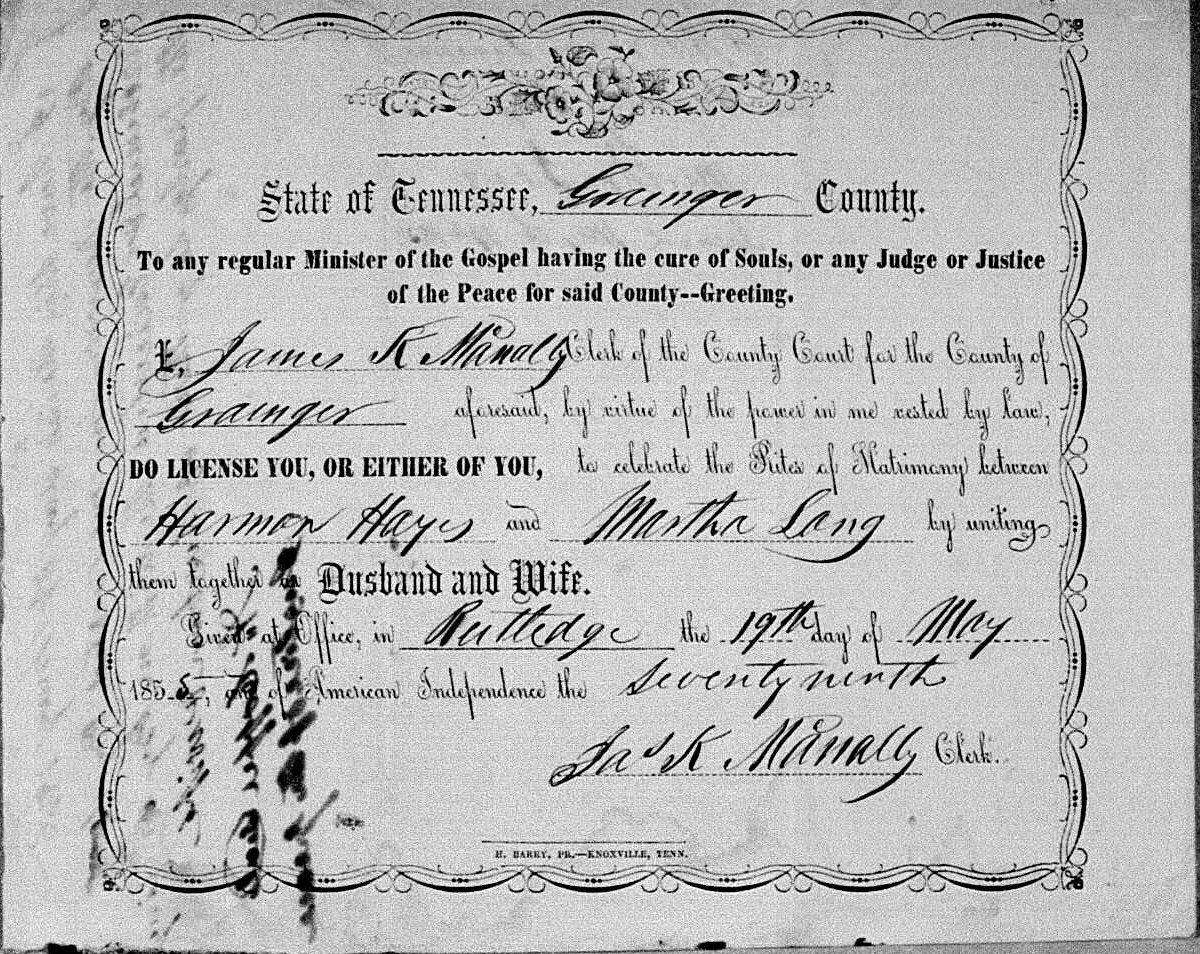 State of Tennessee, Grainger County.
To any regular Minister of the Gospel having the cure of Souls, or any Judge or Justice
of the Peace for said County--Greeting.
I, James K McAnally Clerk of the County Court for the County of
Grainger aforesaid, by virtue of the power in me vested by law,
DO LICENSE YOU, OR EITHER OF YOU, to celebrate the Rites of Matrimony between
Harmon Hayes and Martha Lang by uniting
them together as Husband and Wife.
Given at Office, in Rutledge the 19th day of May
1855, and of American Independence the seventy ninth
Jas K McAnally Clerk.
H. BARRY, PR.—KNOXVILLE, TENN.